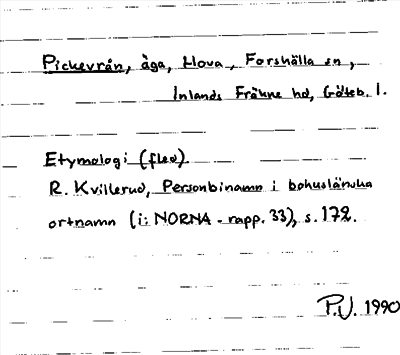 Pickevrån, äga, Hova, Forshälla sn,
Inlands Fräkne hd, Göteb. l.
Etymologi (fled).
R. Kvillerud, Personbinamn i bohuslänska
ortnamn (i: NORNA-rapp. 33), s. 172.
P.V. 1990